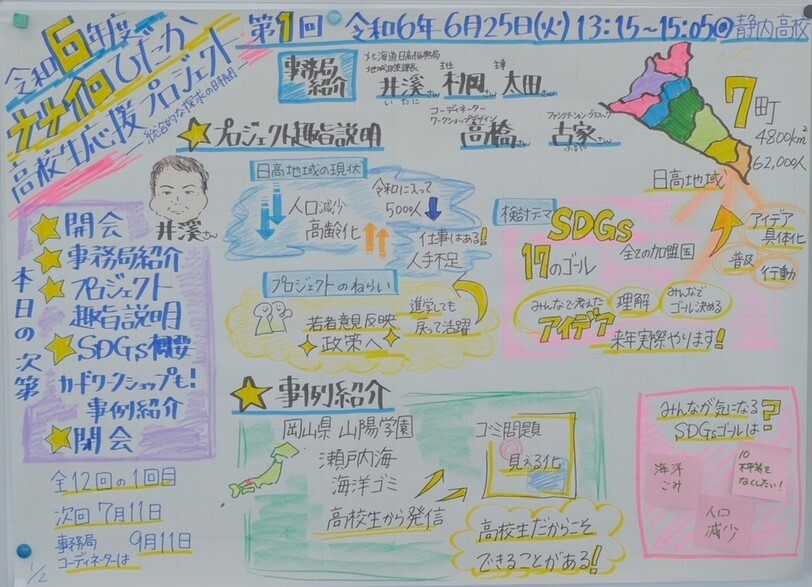 令和6年度
ウサイロひだか
高校生応援プロジェクト
第1回 令和6年6月25日(火)13:15~15:05@静内高校
事務局
紹介
北海道日高振興局
主任
主事
井溪さん 村岡さん 太田さん
いたに
コーディネーター
ワークショップデザイン
高橋さん
古家さん
ふるや
7町
4800km
62,000人
日高地域
プロジェクト趣旨説明
井溪さん
本日の次第
開会
事務局紹介
プロジェクト
趣旨説明
SDGs概要
カードワークショップも!
事例紹介
閉会
全12回の1回目
次回7月11日
事務局 9月11日
コーディネーターは
1/2
日高地域の現状
人口減少
高齢化
令和に入って
5000人
仕事はある!
人手不足
プロジェクトのねらい
若者意見反映
政策へ
進学しても
戻って活躍
検討テーマ SDGs
17のゴール 全ての加盟国
みんなで考えた
アイデア
理解
みんなで
ゴール決める
来年実際やります!
アイデア
具体化
普及
行動
事例紹介
岡山県 山陽学園
瀬戸内海
海洋ゴミ
高校生から発信
ゴミ問題
見える化
高校生だからこそ
できることがある!
みんなが気になる
SDGsゴールは?
海洋
ごみ
10
不平等を
なくしたい!
人口
減少